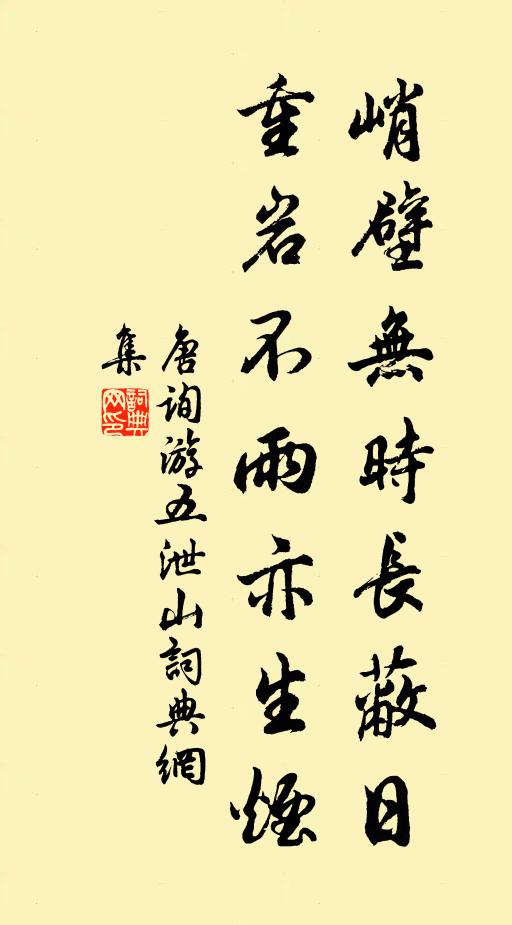 峭壁無時長蔽日
重岩不雨亦生煙
唐询游五泄山詞典網
集
詞典
网印